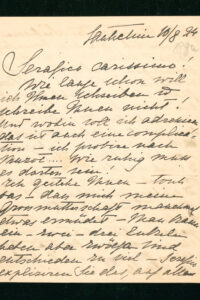 10/8 34
Serafico carissimo!
Wie lange schon will
ich Ihnen schreiben u
schreibe Ihnen nicht!
soll ich adressieren
das ist auch eine compli
tion – ich probire nach
Wie ruhig muss
es dorten sein!
Ich gestehe Ihnen – tout
bas – dass mich meine
Grossmutterschaft
etwas ermüdet – Man kann
ein – zwei – drei Enkeln
haben aber zwölf sind
entschieden zu viel –
Sie das, auf allen